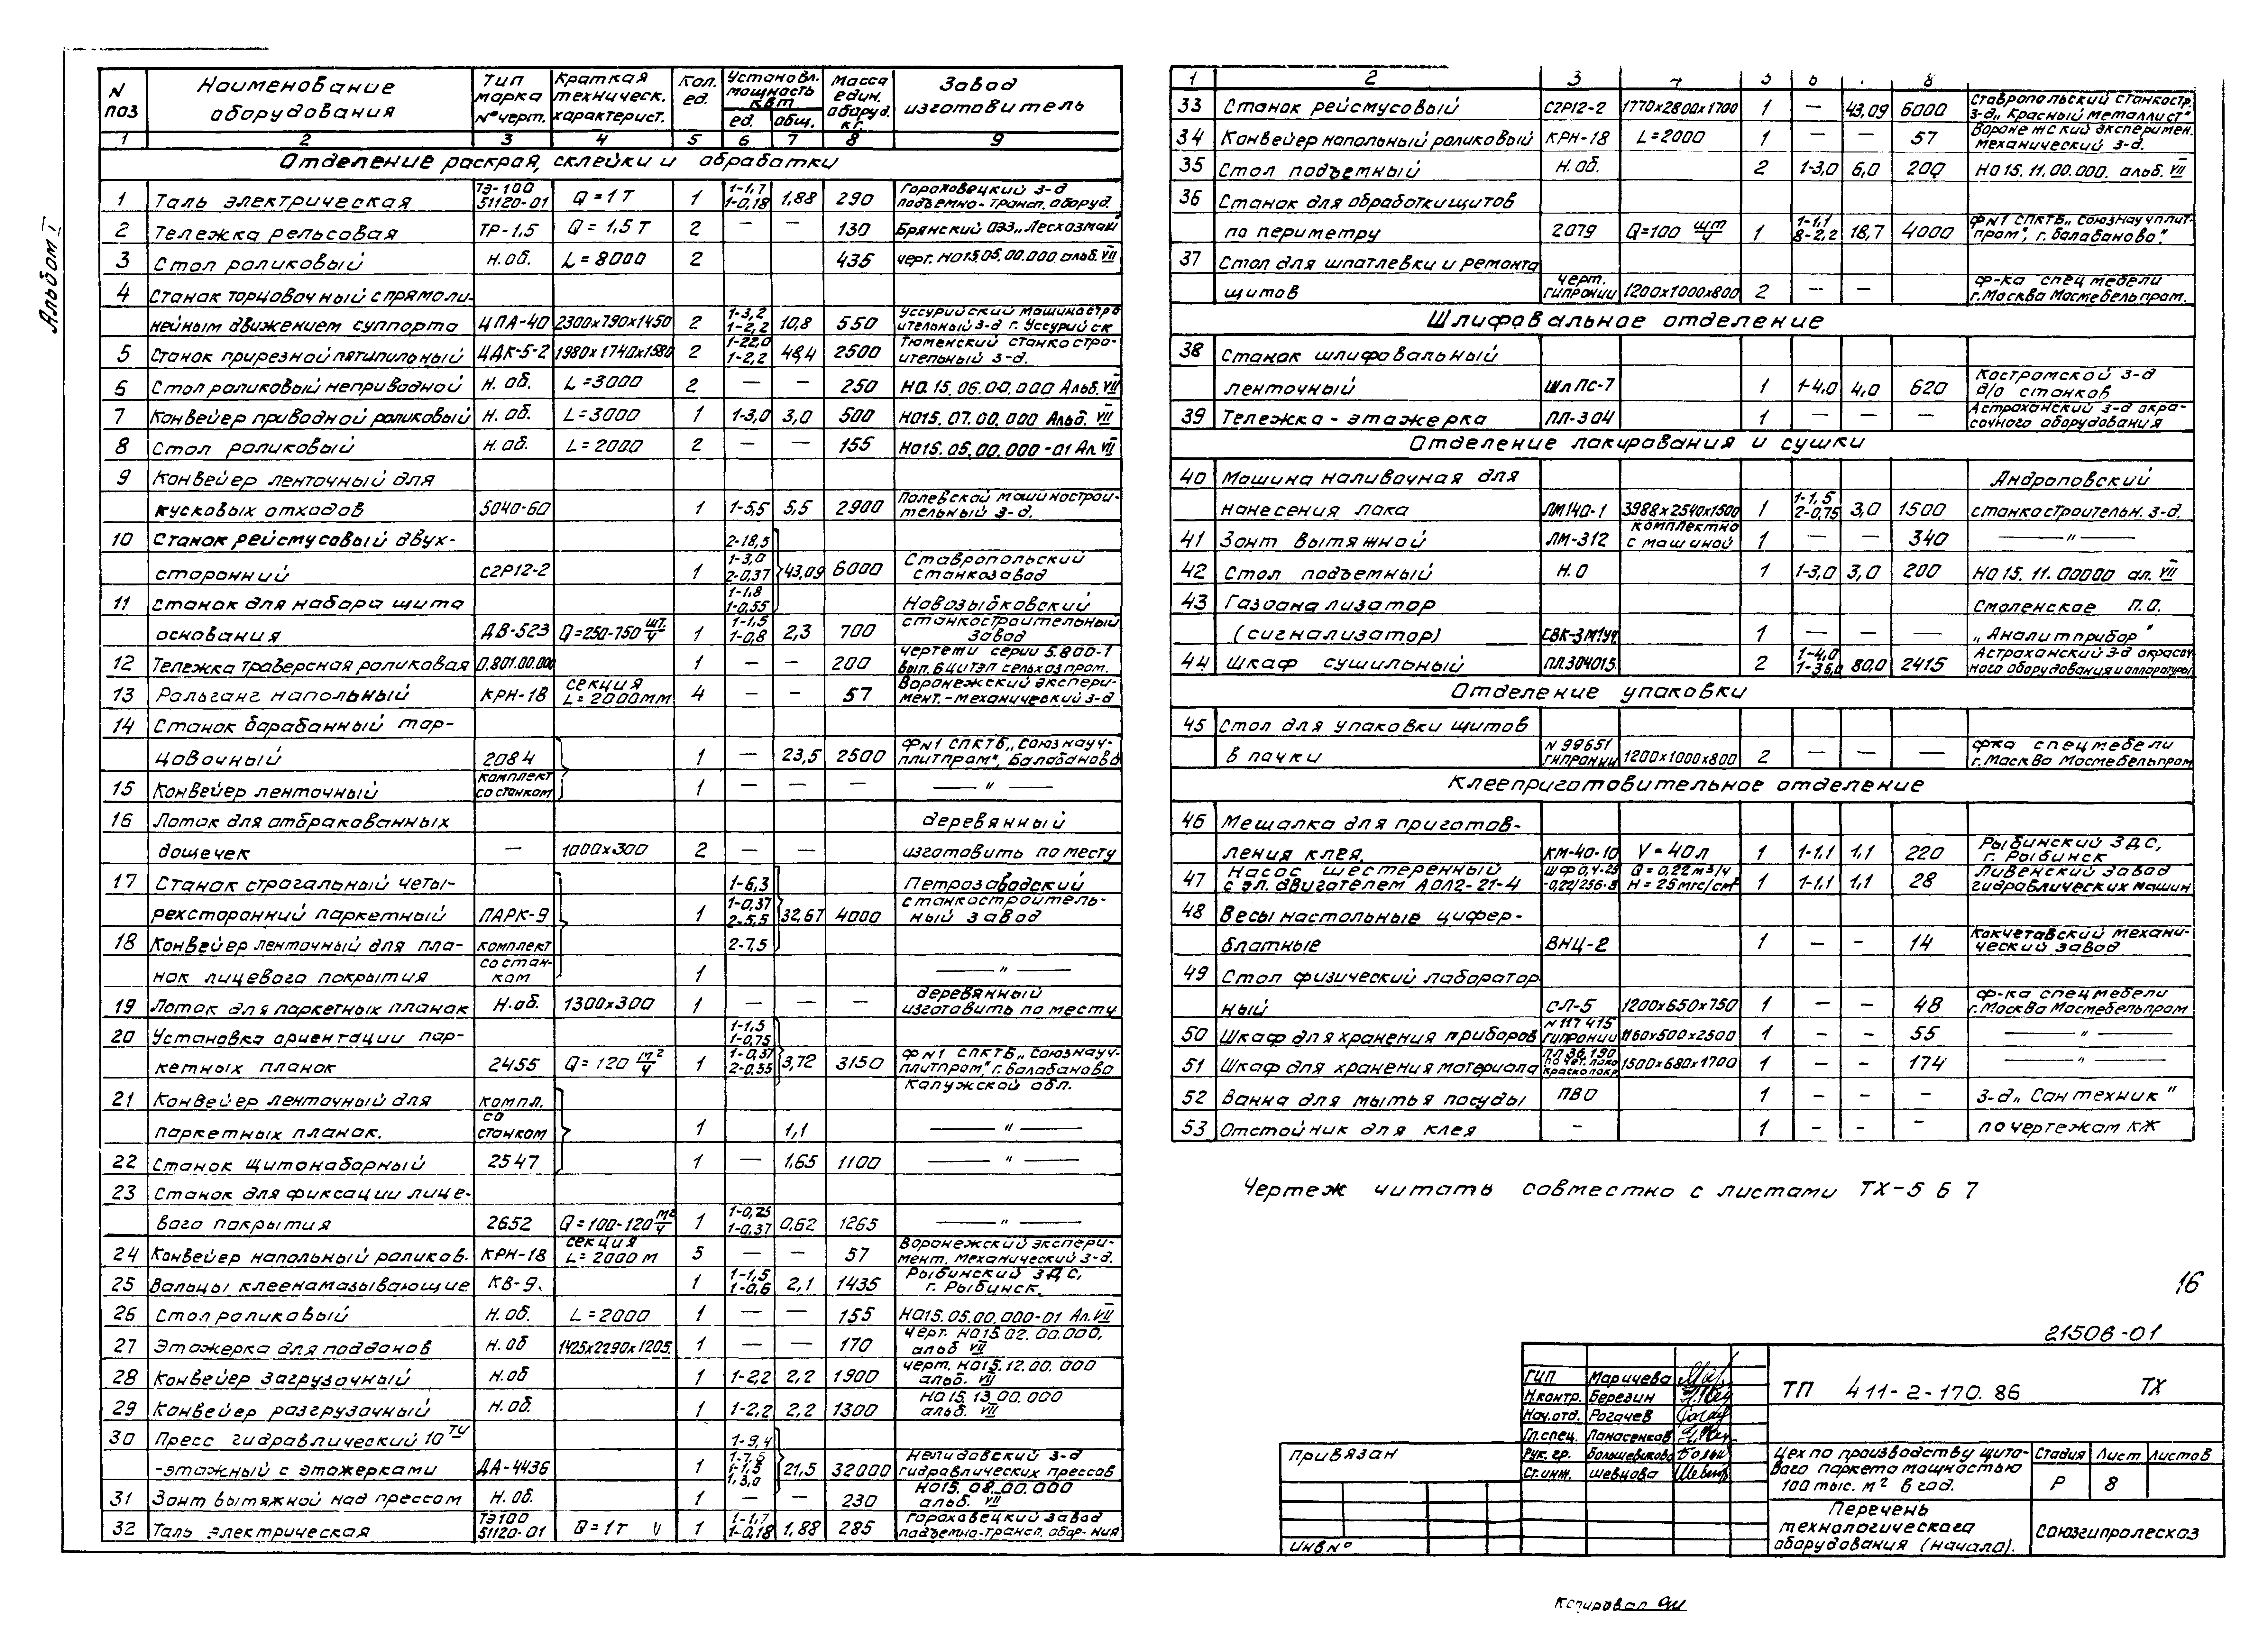 Альбом I
N поз | Наименование оборудования | Тип марка №черт. | Краткая техническ. характерист. | Кол. ед. | Установл. мощность квт ед. общ. | Масса един. оборуд. кг. | Завод изготовитель
1 2 3 4 5 6 7 8 9
Отделение раскроя, склейки и обработки
1 Таль электрическая ТЭ-100 51120-01 Q=1Т 1 1-1,7 1-0,18 1,88 290 Гороховецкий з-д подъемно-трансп. оборуд.
2 Тележка рельсовая ТР-1,5 Q=1,5Т 2 — 130 Брянский ОЭЗ „Лесхозмаш
3 Стол роликовый Н.об. L=8000 2 435 черт. НО15.05.00.000 альб. VII
4 Станок торцовочный с прямоли-
нейным движением суппорта ЦПА-40 2300х790х1450 2 1-3,2 1-2,2 10,8 550 Уссурийский машиностро ительный з-д г. Уссурийск
5 Станок прирезной пятипильный ЦДК-5-2 1980х1740х1580 2 1-22,0 1-2,2 48,4 2500 Тюменский станкостро- ительный з-д.
6 Стол роликовый неприводной Н.об. L=3000 2 — — 250 НО.15.06.00.000 Альб. VII
7 Конвейер приводной роликовый Н.об. L=3000 1 1-3,0 3,0 500 НО15.07.00.000 Альб. VII
8 Стол роликовый Н.об. L=2000 2 — — 155 НО15.05.00.000-01 Ал. VII
9 Конвейер ленточный для
кусковых отходов 5040-60 1 1-5,5 5,5 2900 Полевской машинострои- тельный з-д.
10 Станок рейсмусовый двух- 2-18,5
сторонний С2Р12-2 1 1-3,0 2-0,37 43,09 6000 Ставропольский станкозавод
11 Станок для набора щита 1-1,8 1-0,55 Новозыбковский
основания ДВ-523 Q=250-750 шт./ч 1 1-1,5 1-0,8 2,3 700 станкостроительный завод
12 Тележка траверсная роликовая 0.801.00.000 1 — — 200 чертежи серии 5.800-1 вып. 6 ЦИТЭП сельхозпром.
13 Рольганг напольный КРН-18 секция L=2000мм 4 — — 57 Воронежский экспери- мент.-механический з-д
14 Станок барабанный тор-
цовочный 2084 1 — 23,5 2500 ФN1 СПКТБ „Союзнауч- плитпром", Балабаново
15 Конвейер ленточный комплект со станком 1 — — — — " —
16 Лоток для отбракованных деревянный
дощечек — 1000х300 2 — — изготовить по месту
17 Станок строгальный четы- 1-6,3 Петрозаводский
рехсторонний паркетный ПАРК-9 1 1-0,37 2-5,5 32,67 4000 станкостроитель- ный завод
18 Конвейер ленточный для пла- комплект 2-7,5
нок лицевого покрытия со стан- ком 1 — " —
19 Лоток для паркетных планок Н.об. 1300х300 1 — — — деревянный изготовить по месту
20 Установка ориентации пар- 1-1,5 1-0,75
кетных планок 2455 Q=120 м²/ч 1 1-0,37 2-0,55 3,72 3150 ФN1 СПКТБ „Союзнауч- плитпром", г. Балабаново
21 Конвейер ленточный для компл. Калужской обл.
паркетных планок. со станком 1 1,1 — " —
22 Станок щитонаборный 2547 1 — 1,65 1100 — " —
23 Станок для фиксации лице-
вого покрытия 2652 Q=100-120 м²/ч 1 1-0,25 1-0,37 0,62 1265 — " —
24 Конвейер напольный роликов. КРН-18 секция L=2000м 5 — — 57 Воронежский экспери- мент. механический з-д.
25 Вальцы клеенамазывающие КВ-9. 1 1-1,5 1-0,6 2,1 1435 Рыбинский ЗДС, г. Рыбинск.
26 Стол роликовый Н.об. L=2000 1 — — 155 НО15.05.00.000-01 Ал. VII
27 Этажерка для поддонов Н.об 1425х2290х1205. 1 — — 170 Черт. НО15.02.00.000, альб VII
28 Конвейер загрузочный Н.об 1 1-2,2 2,2 1900 черт. НО15.12.00.000 альб. VII
29 Конвейер разгрузочный Н.об. 1 1-2,2 2,2 1300 НО.15.13.00.000 альб. VII
30 Пресс гидравлический 10 ти 1-9,4
-этажный с этажерками ДА-4436 1 1-1,5 1-3,0 21,5 32000 Нелидовский з-д гидравлических прессов
31 Зонт вытяжной над прессом Н.об. 1 — — 230 НО15.08.00.000 альб. VII
32 Таль электрическая ТЭ100 51120-01 Q=1Т 1 1-1,7 1-0,18 1,88 285 Гороховецкий завод подъемно-трансп. обор-ния
1 2 3 4 5 6 8
33 Станок рейсмусовый С2Р12-2 1770х2800х1700 1 — 43,09 6000 Ставропольский станкостр. з-д „Красный металлист"
34 Конвейер напольный роликовый КРН-18 L=2000 1 — — 57 Воронежский эксперимен. механический з-д.
35 Стол подъемный Н.об. 2 1-3,0 6,0 200 НО15.11.00.000. альб. VII
36 Станок для обработки щитов
по периметру 2079 Q=100 шт/ч 1 1-1,1 8-2,2 18,7 4000 ФN1 СПКТБ „Союзнаучплит- пром", г. Балабаново."
37 Стол для шпатлевки и ремонта
щитов черт. ГИПРОНИИ 1200х1000х800 2 — — ф-ка спец мебели г. Москва Мосмебельпром.
Шлифовальное отделение
38 Станок шлифовальный
ленточный ШлПС-7 1 1-4,0 4,0 620 Костромской з-д д/о станков
39 Тележка-этажерка ПЛ-304 1 — — — Астраханский з-д окра- сочного оборудования
Отделение лакирования и сушки
40 Машина наливочная для Андроповский
нанесения лака ЛМ140-1 3988х2540х1500 1 1-1,5 2-0,75 3,0 1500 станкостроительн. з-д.
41 Зонт вытяжной ЛМ-312 комплектно с машиной 1 — — 340 — " —
42 Стол подъемный Н.О 1 1-3,0 3,0 200 НО15.11.00000 ал. VII
43 Газоанализатор Смоленское П.О.
(сигнализатор) СВК-3М1УЧ 1 — — — „Аналитприбор"
44 Шкаф сушильный ПЛ304015. 2 1-4,0 1-36,0 80,0 2415 Астраханский з-д окрасоч- ного оборудования и аппаратуры
Отделение упаковки
45 Стол для упаковки щитов
в пачки N 99651 ГИПРОНИИ 1200х1000х800 2 — — — фка спец мебели г. Москва Мосмебельпром
Клееприготовительное отделение
46 Мешалка для приготов-
ления клея. КМ-40-10 V=40л 1 1-1,1 1,1 220 Рыбинский ЗДС, г. Рыбинск
47 Насос шестеренный с эл. двигателем АОЛ2-21-4 ШФ0,4-25 -0,22/25б-3 Q=0,22м3/ч Н=25мгс/см² 1 1-1,1 1,1 28 Ливенский завод гидравлических машин
48 Весы настольные цифер-
блатные ВНЦ-2 1 — - 14 Кокчетавский механи- ческий завод
49 Стол физический лаборатор
ный СЛ-5 1200х650х750 1 - - 48 ф-ка спец мебели г. Москва Мосмебельпром
50 Шкаф для хранения приборов N 117415 ГИПРОНИИ 1160х500х2500 1 - - 55 — " —
51 Шкаф для хранения материала ПЛ 36.190 1500х680х1700 1 - - 174 — " —
52 Ванна для мытья посуды ПВО 1 - - - З-д „Сантехник"
53 Отстойник для клея - 1 - - - по чертежам КЖ
Чертеж читать совместно с листами ТХ-5 6 7
16
21506-01
ГИП Маричева
Н.контр. Березин
Нач.отд. Рогачев
Гл.спец. Панасенков
Рук. гр. Большевикова
Ст.инж. Шевцова
ТП 411-2-170.86 ТХ
Привязан
ИНВ№
Цех по производству щито- вого паркета мощностью 100 тыс. м² в год.
Стадия Лист Листов
Р 8
Перечень технологического оборудования (начало).
Союзгипролесхоз
Копировал